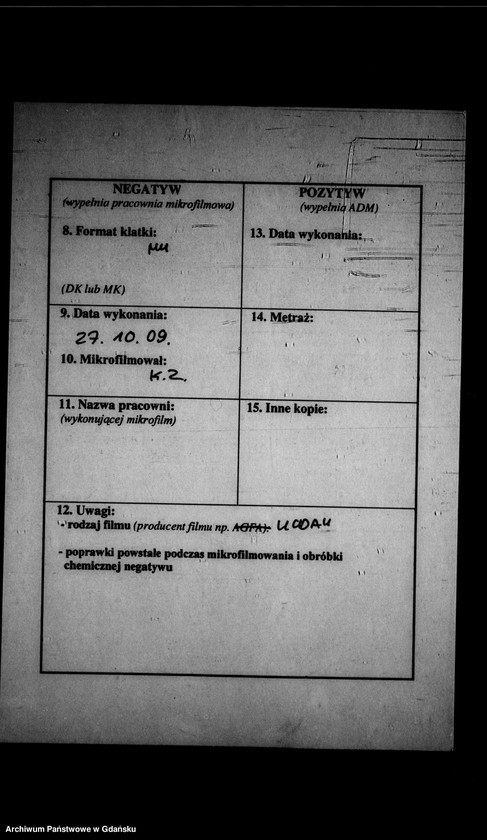 NEGATYW
(wypełnia pracownia mikrofilmowa)
8. Format klatki:
(DK lub MK)
9. Data wykonania:
27. 10. 09.
10. Mikrofilmował:
K.Z.
11. Nazwa pracowni:
(wykonującej mikrofilm)
POZYTYW
(wypełnia ADM)
13. Data wykonania:
14. Metraż:
15. Inne kopie:
12. Uwagi:
- rodzaj filmu (producent filmu np. AGFA):
- poprawki powstałe podczas mikrofilmowania i obróbki
chemicznej negatywu
Archiwum Państwowe w Gdańsku